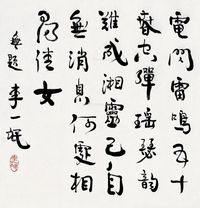 電閃雷鳴五十
春空彈瑤瑟韻
難成湘靈已自
無消息何處相
倩女
無題 李一氓